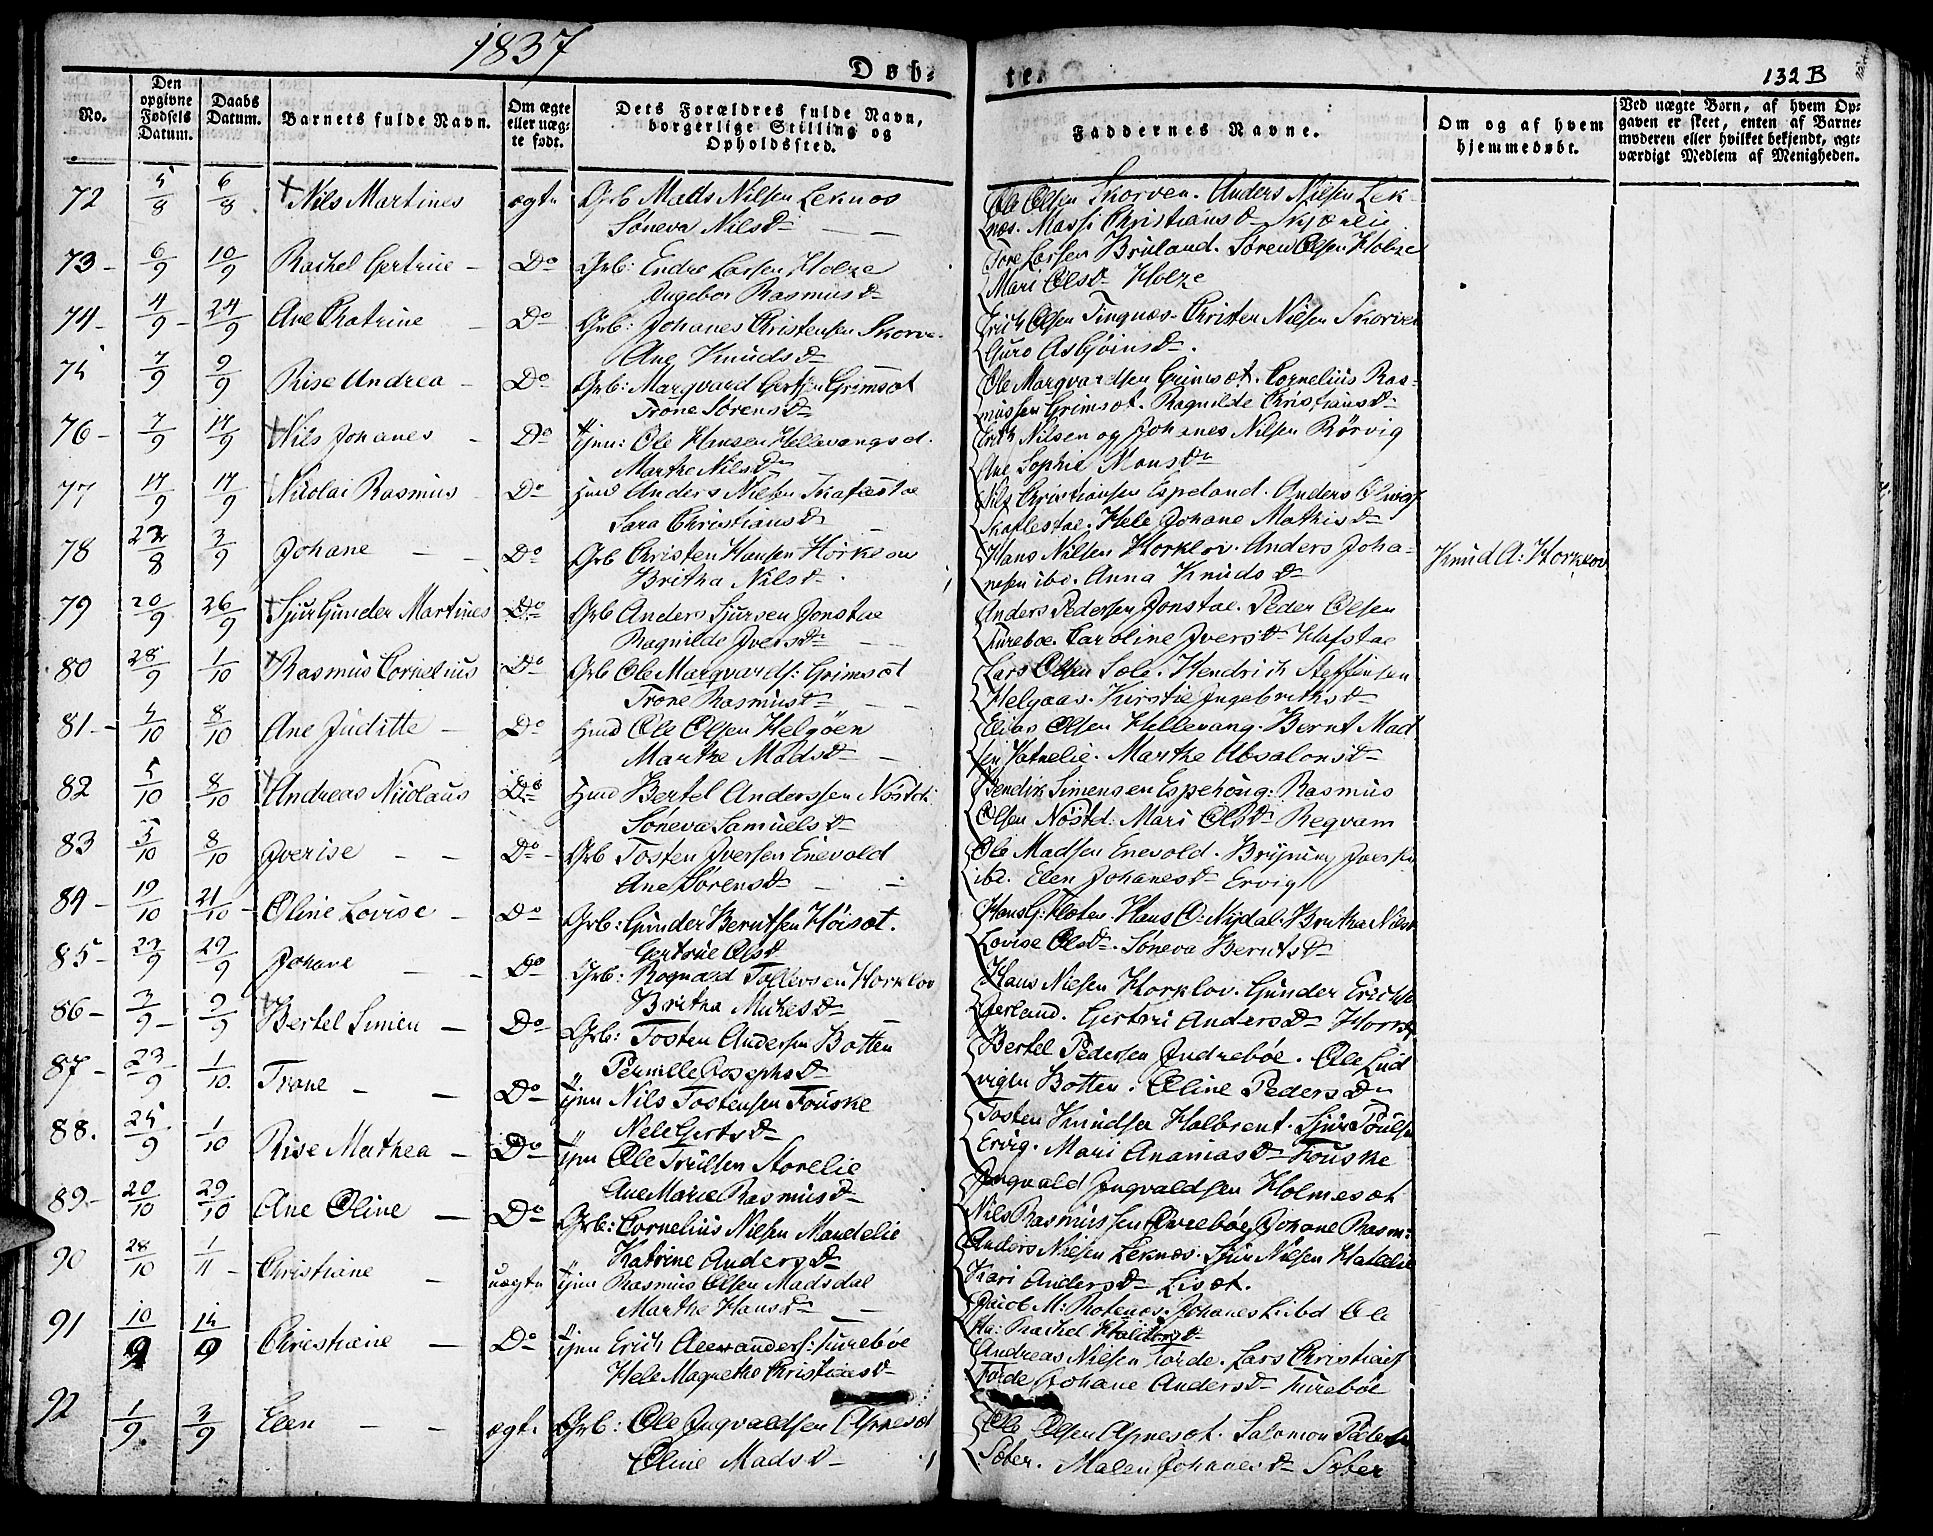 1837
Døb-
te.
132 B
No.
Den opgivne Fødsels Datum.
Daabs Datum.
Barnets fulde Navn.
Om ægte eller uæg- te født.
Dets Forældres fulde Navn, borgerlige Stilling og Opholdssted.
Faddernes Navne.
Om og af hvem hjemmedøbt.
Ved uægte Børn, af hvem Op- gaven er skeet, enten af Barne- moderen eller hvilket bekjendt, agt- værdigt Medlem af Menigheden.
72 5/8 6/8 Nils Martines ægte Grb Mads Nilsen Leknes
Søneva Nilsd
Ole Olsen Skorven. Anders Nielsen Lek-
nes. Massi Christiansd
73 6/9 10/9 Rachel Gertrue Do Grb: Endre Larsen Holze
Ingebor Rasmusd
Tore Larsen Bruland. Søren Olsen Holze
Mari Olsd Holze
74 4/9 24/9 Ane Chatrine Do Grb: Johanes Christensen Skorve
Ane Knudsd
Erich Olsen Tingnæs. Christen Nielsen Skorven
Guro Asbjöinsd.
75 7/9 9/9 Rise Andrea Do Grb: Marqvard Gertsen Grimsæt
Trone Sørensd
Ole Marqvardsen Grimsæt. Cornelius Ras-
mussen Grimsæt. Ragnilde Christiansd
76 7/9 17/9 Nils Johanes Do Tjen: Ole Hansen Hellevangsd.
Marthe Nilsd
Erich Nilsen og Johanes Nilsen Rörvig
Ane Sophie Monsd
77 17/9 17/9 Nicolai Rasmus Do Hmd Anders Nielsen
Sara Christiansd
Nils Christiansen Espeland. Anders
Hele Johane Mathisd
78 8 3/9 Johane Do Grb Christen Hansen Horklou
Britha Nilsd.
Hans Nilsen Horklov. Anders Joha-
nesen ibd. Anna Knudsd
Knud A: Horklov
79 20/9 26/9 Sjur Gunder Martines Do Grb Anders Sjursen Jonstae
Ragnilde Iversd
Anders Pedersen Jonstae. Peder Olsen
Furebøe. Caroline Iversd Hafstae
80 28/9 1/10 Rasmus Cornelius Do Grb Ole Marqvards: Grimsæt
Trone Rasmusd
Lars Olsen Sole. Hendrich Steffensen
Helgaas. Kirstie Ingebrithsd
81 4/10 8/10 Ane Juditte Do Hmd Ole Olsen Helgöen
Marthe Madsd
Elias Olsen Hellevang. Bernt Mad
sen. Marthe Absalonsd
82 5/10 8/10 Andreas Nicolaus Do Hmd Bertel Anderssen Nöstd:
Söneva Samuelsd
Bendix Simensen Espehöug: Rasmus
Olsen Nöstd: Mari Olsd Reqvam
83 5/10 8/10 Iverise Do Grb Tosten Iversen Enevold
Ane Sørensd
Ole Madsen Enevold.
ibd. Elen Johanesd Ervig
84 19/10 21/10 Oline Lovise Do Grb: Gunder Berntsen Höisæt.
Gertrue Olsd
Hans G: Hans O: Britha Nilsd
Lovise Olsd. Söneva Berntsd
85 29/9 Johane Do Grb: Rognald Tollevsen Horklov
Britha
Hans Nielsen Horklov. Gunder
Gertrue Andersd
86 3/9 9/9 Bertel Simen Do Grb: Tosten Andersen Botten
Pernille Josephsd
Bertel Pedersen Indrebøe. Ole Lud
vigsen Botten. Oline Pedersd
87 23/9 1/10 Trone Do Tjen Nils Tostensen Fouske
Nele Gertsd
Tosten Knudsen Halbrent. Sjur Poulsen
Ervig. Mari Ananiasd Fouske
88. 25/9 1/10 Rise Mathea Do Tjen Ole Storelie
Ane Marie Rasmusd
Ingvald Ingvaldsen Holmesæt
Nils Rasmussen Johane Rasm:
89 20/10 29/10 Ane Oline Do Grb: Cornelius Nielsen Mandelie
Katrine Andersd
Anders Nielsen Leknæs. Sjur Nielsen
Kari Andersd Lisæt.
90 28/10 1/11 Christiane uægte Tjen Rasmus Olsen Madsdal
Marthe Hansd
Jacob M: Johanes ibd Ole
Rachel
91 10/9 14/9 Christiane Do Tjen Erich Alexanders: Furebøe
Hele Magrethe Christiansd
Andreas Nielsen Förde. Lars Christians
Förde Johane Andersd Furebøe
92 1/9 3/9 Elen ægt. Grb: Ole Ingvaldsen
Oline Madsd
Ole Olsen Salomon Peders
Söber. Malen Johanesd Söber